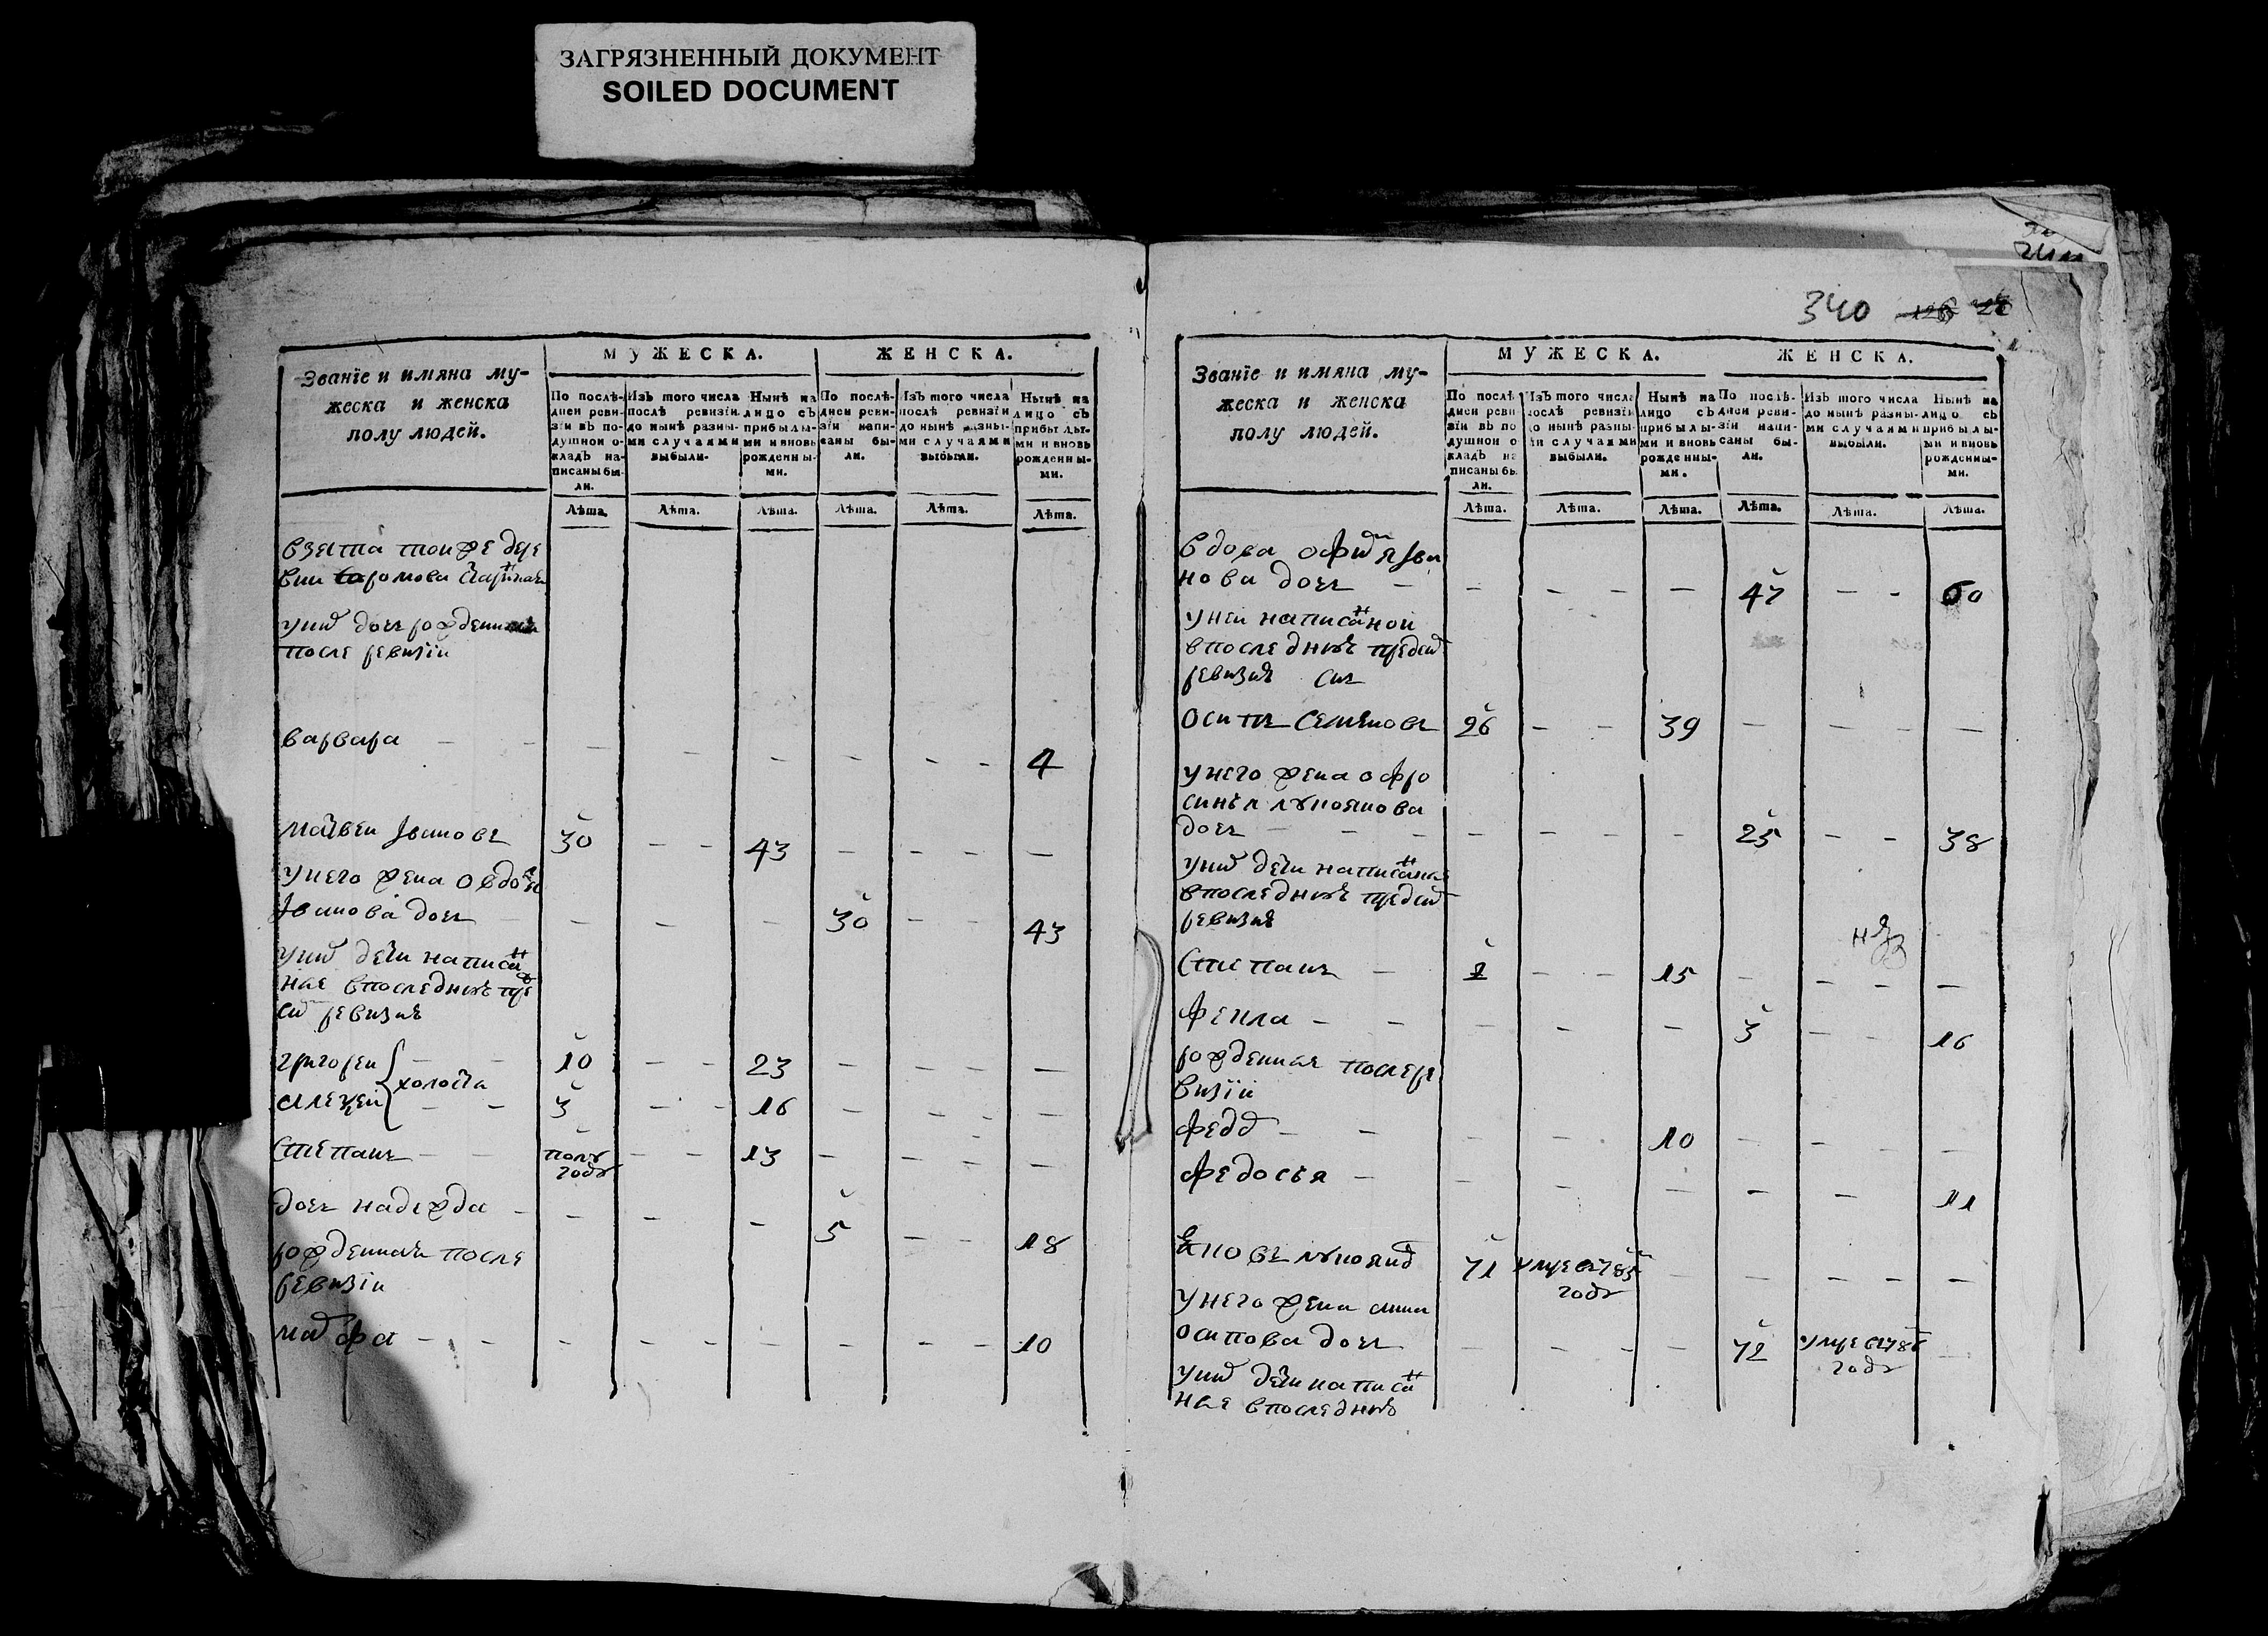 ЗАГРЯЗНЕННЫЙ ДОКУМЕНТ
SOILED DOCUMENT
340
Званїе и имяна му-
жеска и женска
полу людей.
МУЖЕСКА.
ЖЕНСКА.
По послѣ-
дней реви-
зїи въ по-
душной о-
кладъ на-
писаны бы-
ли.
Изъ того числа
послѣ ревизїи
до нынѣ разны-
ми случаями
выбыли.
Нынѣ на
лицо съ
прибылы-
ми и вновь
рожденны-
ми.
По послѣ-
дней реви-
зїи напи-
саны бы-
ли.
Изъ того числа
послѣ ревизїи
до нынѣ разны-
ми случаями
выбыли.
Нынѣ на
лицо съ
прибылы-
ми и вновь
рожденны-
ми.
Лѣта. Лѣта. Лѣта. Лѣта. Лѣта. Лѣта.
взята тоиже дере
вни
уних дочь рожденная
после ревизїи
варвара - - - - - - - - 4
матвеи Iвановъ 30 - - 43 - - - -
унего жена овдотя
Iванова дочь - - - 30 - - 43
уних дети написан
ные впоследнюю пред
сим ревизию
григореи - - 10 - - 23 - - - -
холосты
алексеи - - 3 - - 16 - - - -
степанъ - - полу - - 13 - - - -
году
дочь надежда - - - - 5 - - 18
рожденная после
ревизїи
марфа - - - - - - - - 10
Званїе и имяна му-
жеска и женска
полу людей.
МУЖЕСКА.
ЖЕНСКА.
По послѣ-
дней реви-
зїи въ по-
душной о-
кладъ на-
писаны бы-
ли.
Изъ того числа
послѣ ревизїи
до нынѣ разны-
ми случаями
выбыли.
Нынѣ на
лицо съ
прибылы-
ми и вновь
рожденны-
ми.
По послѣ-
дней реви-
зїи напи-
саны бы-
ли.
Изъ того числа
до нынѣ разны-
ми случаями
выбыли.
Нынѣ на
лицо съ
прибылы-
ми и вновь
рожденны-
ми.
Лѣта. Лѣта. Лѣта. Лѣта. Лѣта. Лѣта.
вдова Iва
нова дочь - - - - - 47 - - 60
унеи написанной
впоследнюю предсим
ревизию сын
осипъ семеновъ 26 - - 39 - - - -
унего жена офро
синья лукоянова
дочь - - - - - - - 25 - - 38
уних дети написаные
впоследнюю предсим
ревизию
степанъ - 2 - - 15 - - - -
фекла - - - - - 3 - - 16
рожденная послере
визїи
федор - - - - 10 - - - -
федосья - - - - - - 11
лукоянов 71 умре в 785 - - - - -
году
унего жена анна
осипова дочь - - - - 72 умре в 786 -
году
уних дети написан
ные впоследнюю